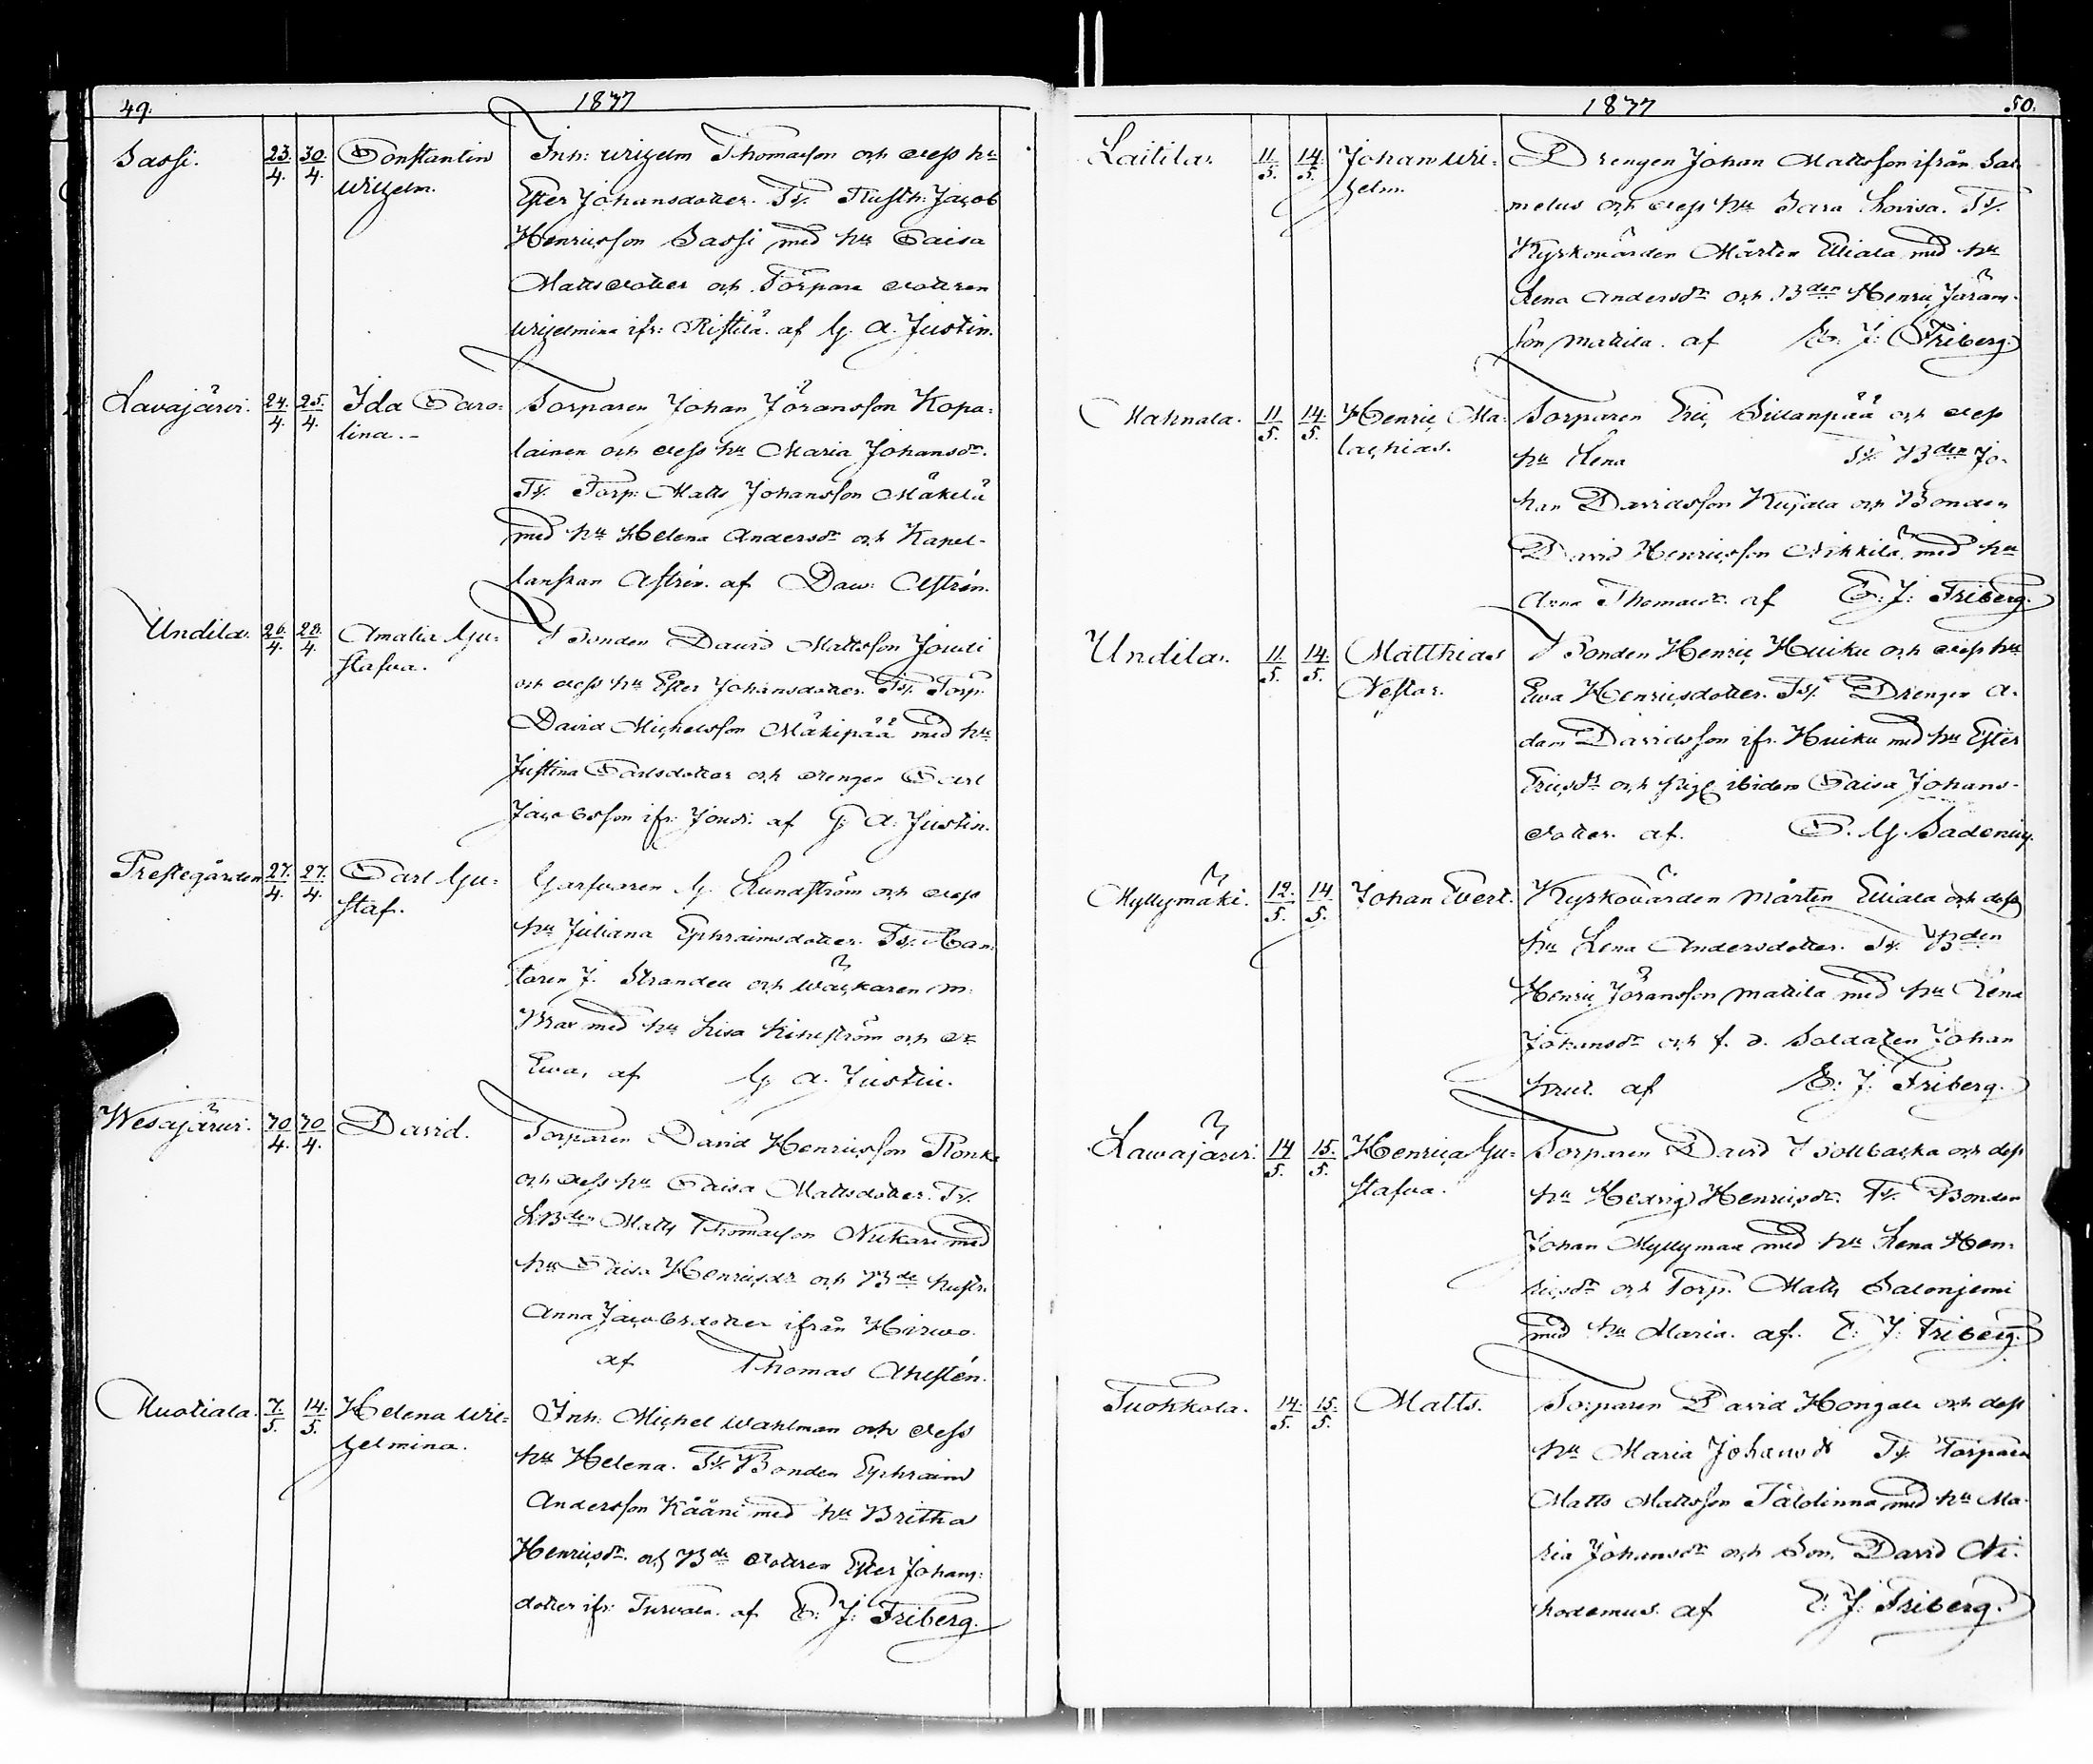 49. 1837
Sassi. 23./4. 30./4. Constantin Inh: Wilhelm Thomasson och dess hu
Wilhelm. Ester Johansdotter. Tv. Rusth: Jacob
Henricsson Sassi med hu Caisa
Mattsdotter och Torpare dottren
Wilhelmina ifr: Ristilä. af G. A. Justin.
Lavajärvi. 24./4. 25./4. Ida Caro- Torparen Johan Jöransson Kopa-
lina.- lainen och dess hu Maria Johansdr.
Tv. Torp: Matts Johansson Mäkelä
med hu Helena Andersdr och Kapel-
lanskan Aströn. af Daw: Aströn.
Undila. 26./4. 28./4. Amalia Gu- Bonden David Mattsson Jouti
stafva. och dess hu Ester Johansdotter. Tv. Torp.
David Michelsson Mäkipää med hu
Justina Carlsdotter och drengen Carl
Jacobsson ifr: Jouti. af G. A. Justin.
Prestegården 27./4. 27./4. Carl Gu- Garfvaren G. Lundström och dess
staf. hu Juliana Ephraimsdotter. Tv. Can-
toren J. Strandell och Wäckaren M.
Brax med hu Lisa Kihlström och dr
Ewa, af G. A. Justin.
Wesajärvi. 30/4. 30/4. David. Torparen David Henricsson Ronka
och dess hu Caisa Mattsdotter. Tv.
LBden Matts Thomasson Nukari med
hu Caisa Henricsdr och Bde hustr:
Anna Jacobsdotter ifrån Hirwo.
af Thomas Ahlstén.
Muotiala. 7./5. 14./5. Helena Wil- Inh: Michel Wahlman och dess
helmina. hu Helena. Tv. Bonden Ephraim
Andersson Kääni med hu Britha
Henricsdr. och Bde dottren Ester Johans-
dotter ifr: Turvala. af E: J: Friberg.
1837 50.
Laitila. 11/5. 14./5. Johan Wil- Drengen Johan Mattsson ifrån Sal-
helm. melus och dess hu Sara Lovisa. Tv.
Kyrkovärden Mårten Elliala med hu
Lena Andersdr och Bden Henric Jörans-
son Mattila. af E: J: Friberg.
Mahnala. 11/5. 14./5. Henric Ma- Torparen Eric Sillanpää och dess
lachias. hu Lena Tv. Bden Jo-
han Davidsson Kujala och Bonden
David Henricsson Nikkilä med hu
Anna Thomasdr. af E: J: Friberg.
Undila. 11./5. 14./5. Matthias Bonden Henric Huiku och dess hu
Nestor. Ewa Henricsdotter. Tv. Drengen A-
dam Davidsson ifr. Huiku med hu Ester
Ericsdr och pig. ibidem Caisa Johans-
dotter. af. C. G. Sadenius.
Myllymäki. 12./5. 14/5. Johan Evert. Kyrkovärden Mårten Elliala och dess
hu Lena Andersdotter. Tv. Bden
Henric Jöransson Mattila med hu Lena
Johansdr och f. d. Soldaten Johan
Krut. af E: J: Friberg.
Lawajärvi. 14/5. 15./5. Henrica Gu- Torparen David Hollbacka och dess
stafva. hu Hedvig Henricsdr. Tv. Bonden
Johan Myllymaa med hu Lena Hen-
ricsdr och Torp. Matts Salonjemi
med hu Maria. af. E: J: Friberg.
Tuokkola. 14./5. 15./5. Matts. Torparen David Hongala och dess
hu Maria Johansdr Tv. Torparen
Matts Mattsson Tälölinna med hu Ma-
ria Johansdr och Son. David Ni-
kodemus. af E: J: Friberg.